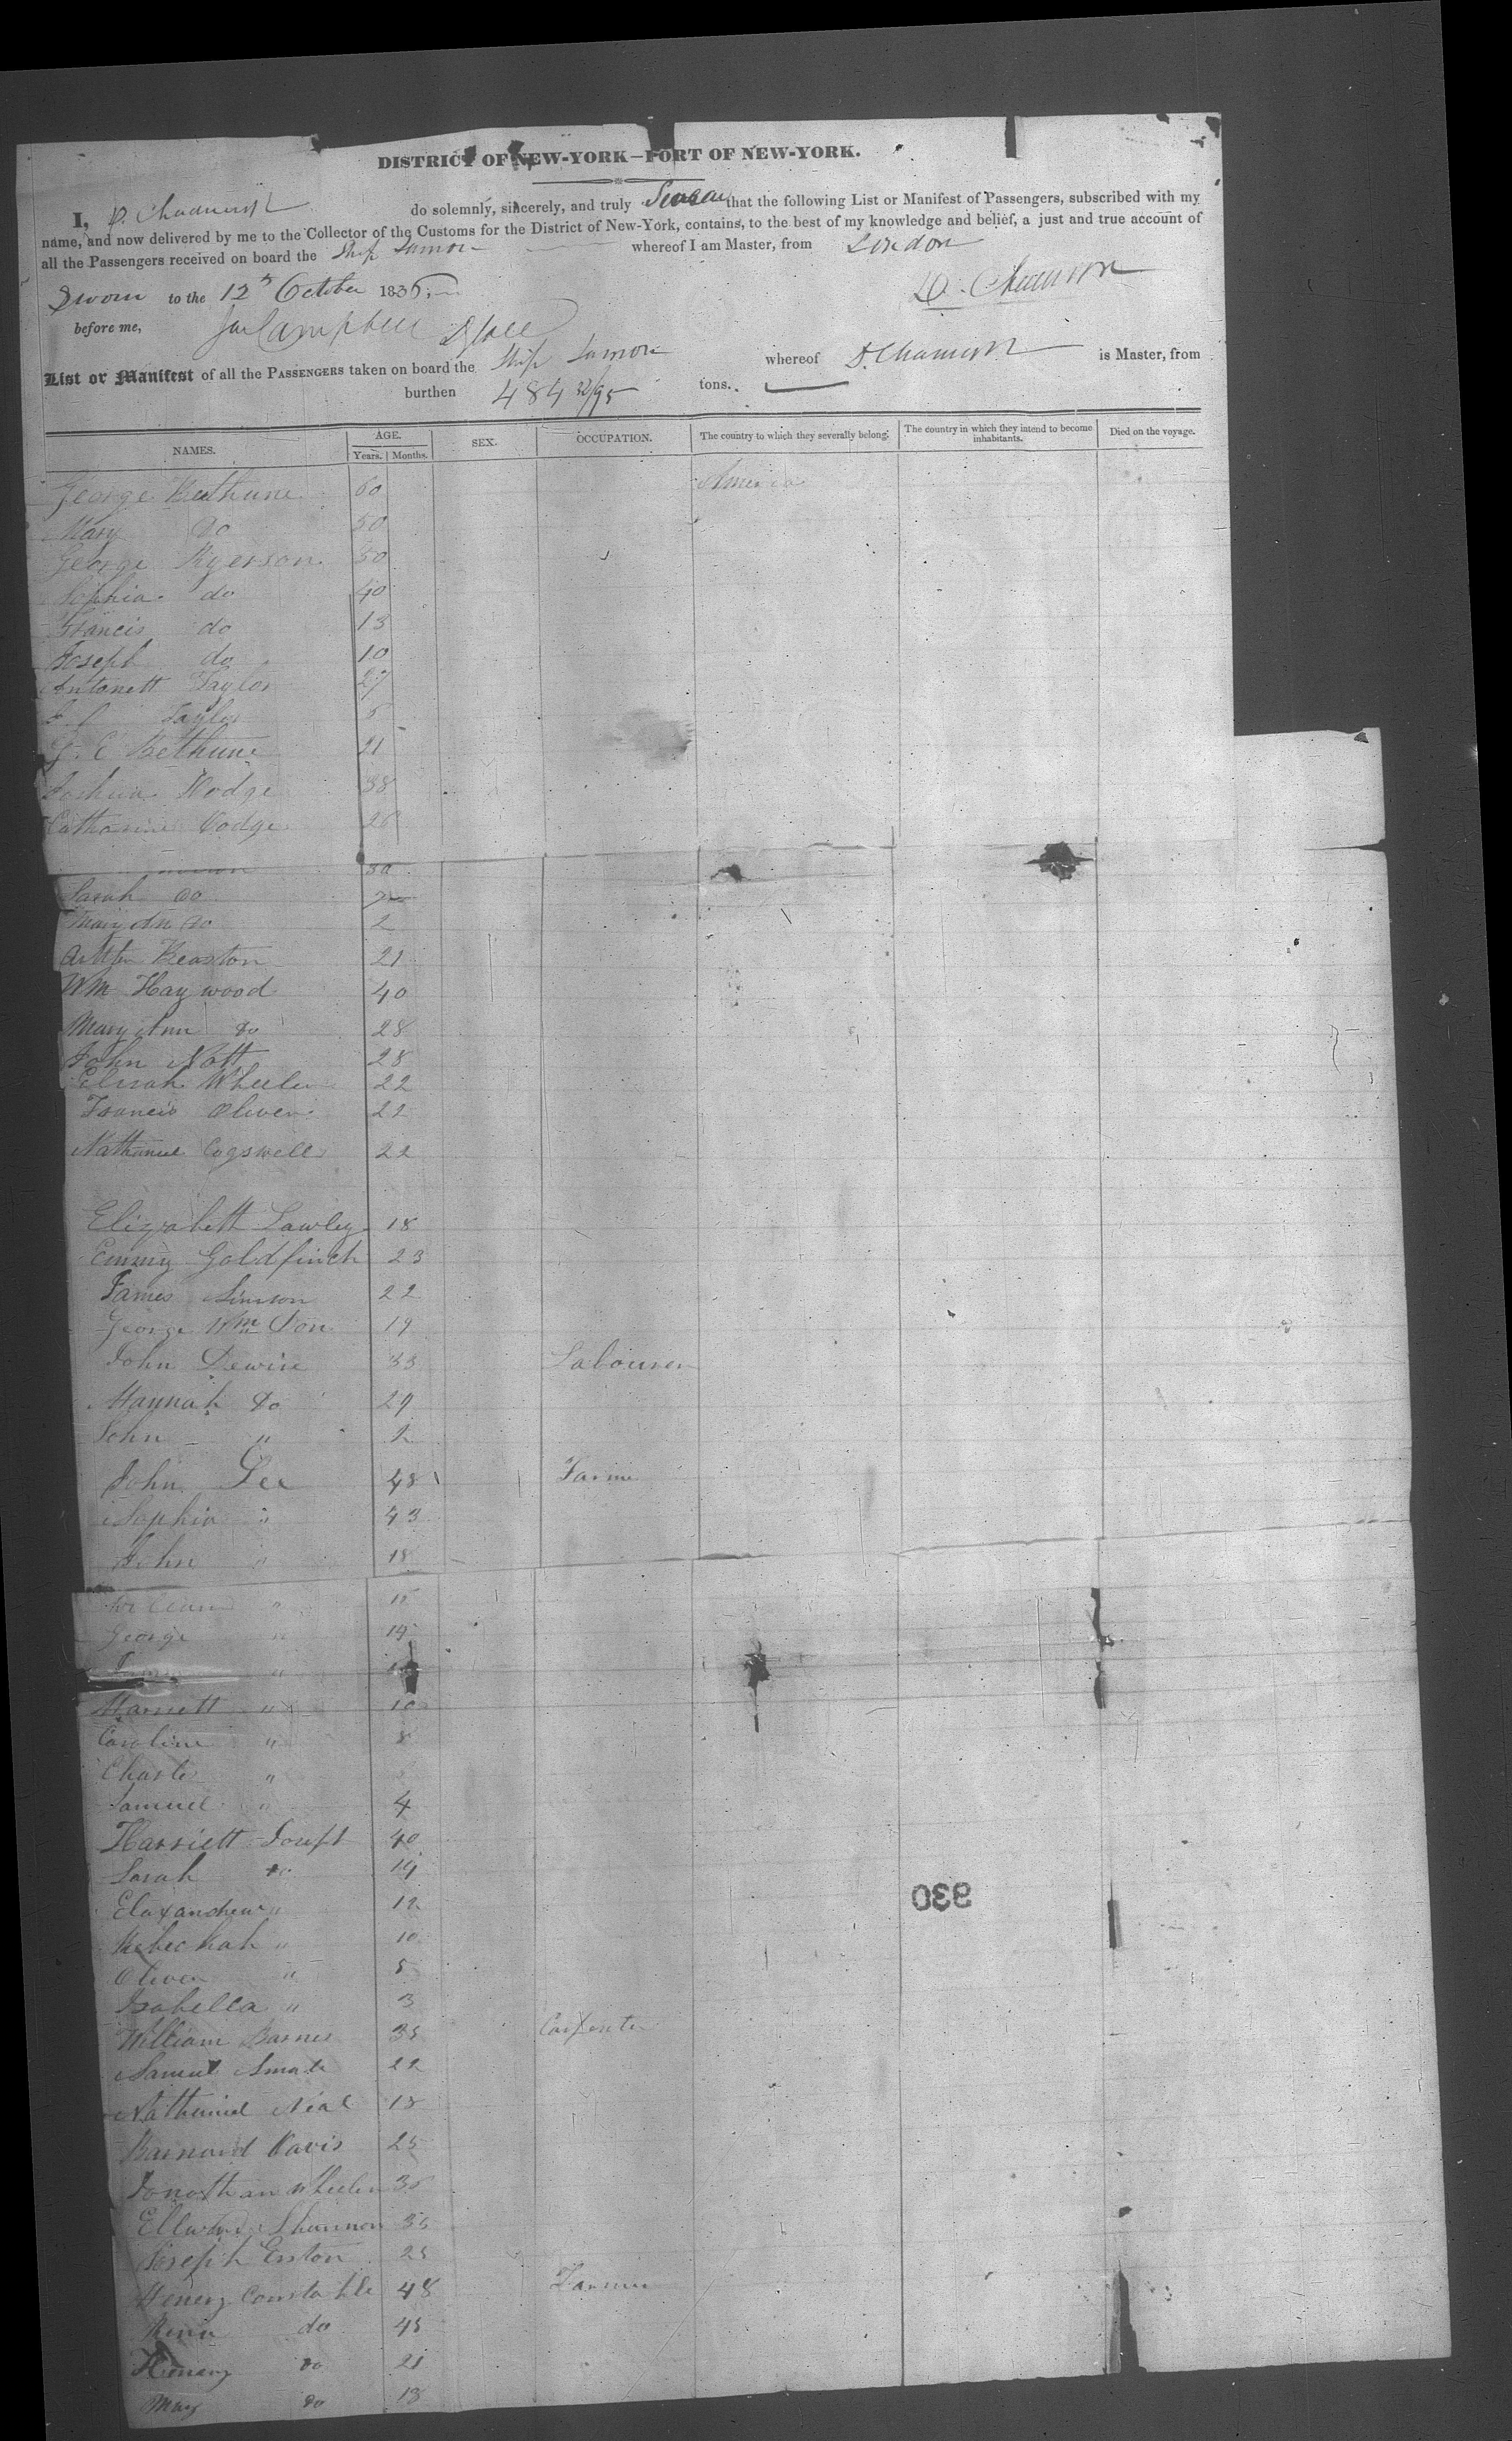 DISTRICT OF NEW-YORK—PORT OF NEW-YORK.
I, D. do solemnly, sincerely, and truly Swear that the following List or Manifest of Passengers, subscribed with my
name, and now delivered by me to the Collector of the Customs for the District of New-York, contains, to the best of my knowledge and belief, a just and true account of
all the Passengers received on board the Ship whereof I am Master, from London
D.
Sworn to the 12th October 1836.
before me, Jas Campbell
List or Manifest of all the PASSENGERS taken on board the Ship whereof D. is Master, from
burthen 484 32/95 tons.
NAMES. AGE. SEX. OCCUPATION. The country to which they severally belong. The country in which they intend to become inhabitants. Died on the voyage.
Years. Months.
George Bethune 60 America
Mary Do 50
George Ryerson 50
Sophia do 40
Francis do 13
Joseph do 10
Antonett Taylor 27
Taylor 5
G. C Bethune 21
Joshua Hodge 38
Catharine Dodge 26
30
Sarah Do
Mary An Do 2
Beaston 21
Wm Haywood 40
Mary Ann Do 28
John Nott 28
Elisah Wheeler 22
Francis Oliver 22
Nathaniel Cogswell 22
Elizabett Lawley 18
Emmy Goldfinch 23
James Simson 22
George Wm Don 19
John Dewire 33 Labourer
Hannah Do 29
John " 2
John Lee 48 Farmer
Sophia " 43
John " 18
William "
George " 14
"
Harriett " 10
Caroline " 8
Charles "
Samuel " 4
Harriett Joseph 40
Sarah Do 14
Elaxandrew " 12
Rebeckah " 10
Oliver " 5
Isabella " 3
William Barnes 35 Carpenter
Samuel 22
Nathaniel Neal 18
Barnard Davis 25
Jonathan Wheeler 35
Shannon 35
Joseph Enston 25
Henery Constable 48 Farmer
do 45
Henery Do 21
Mary Do 18
930